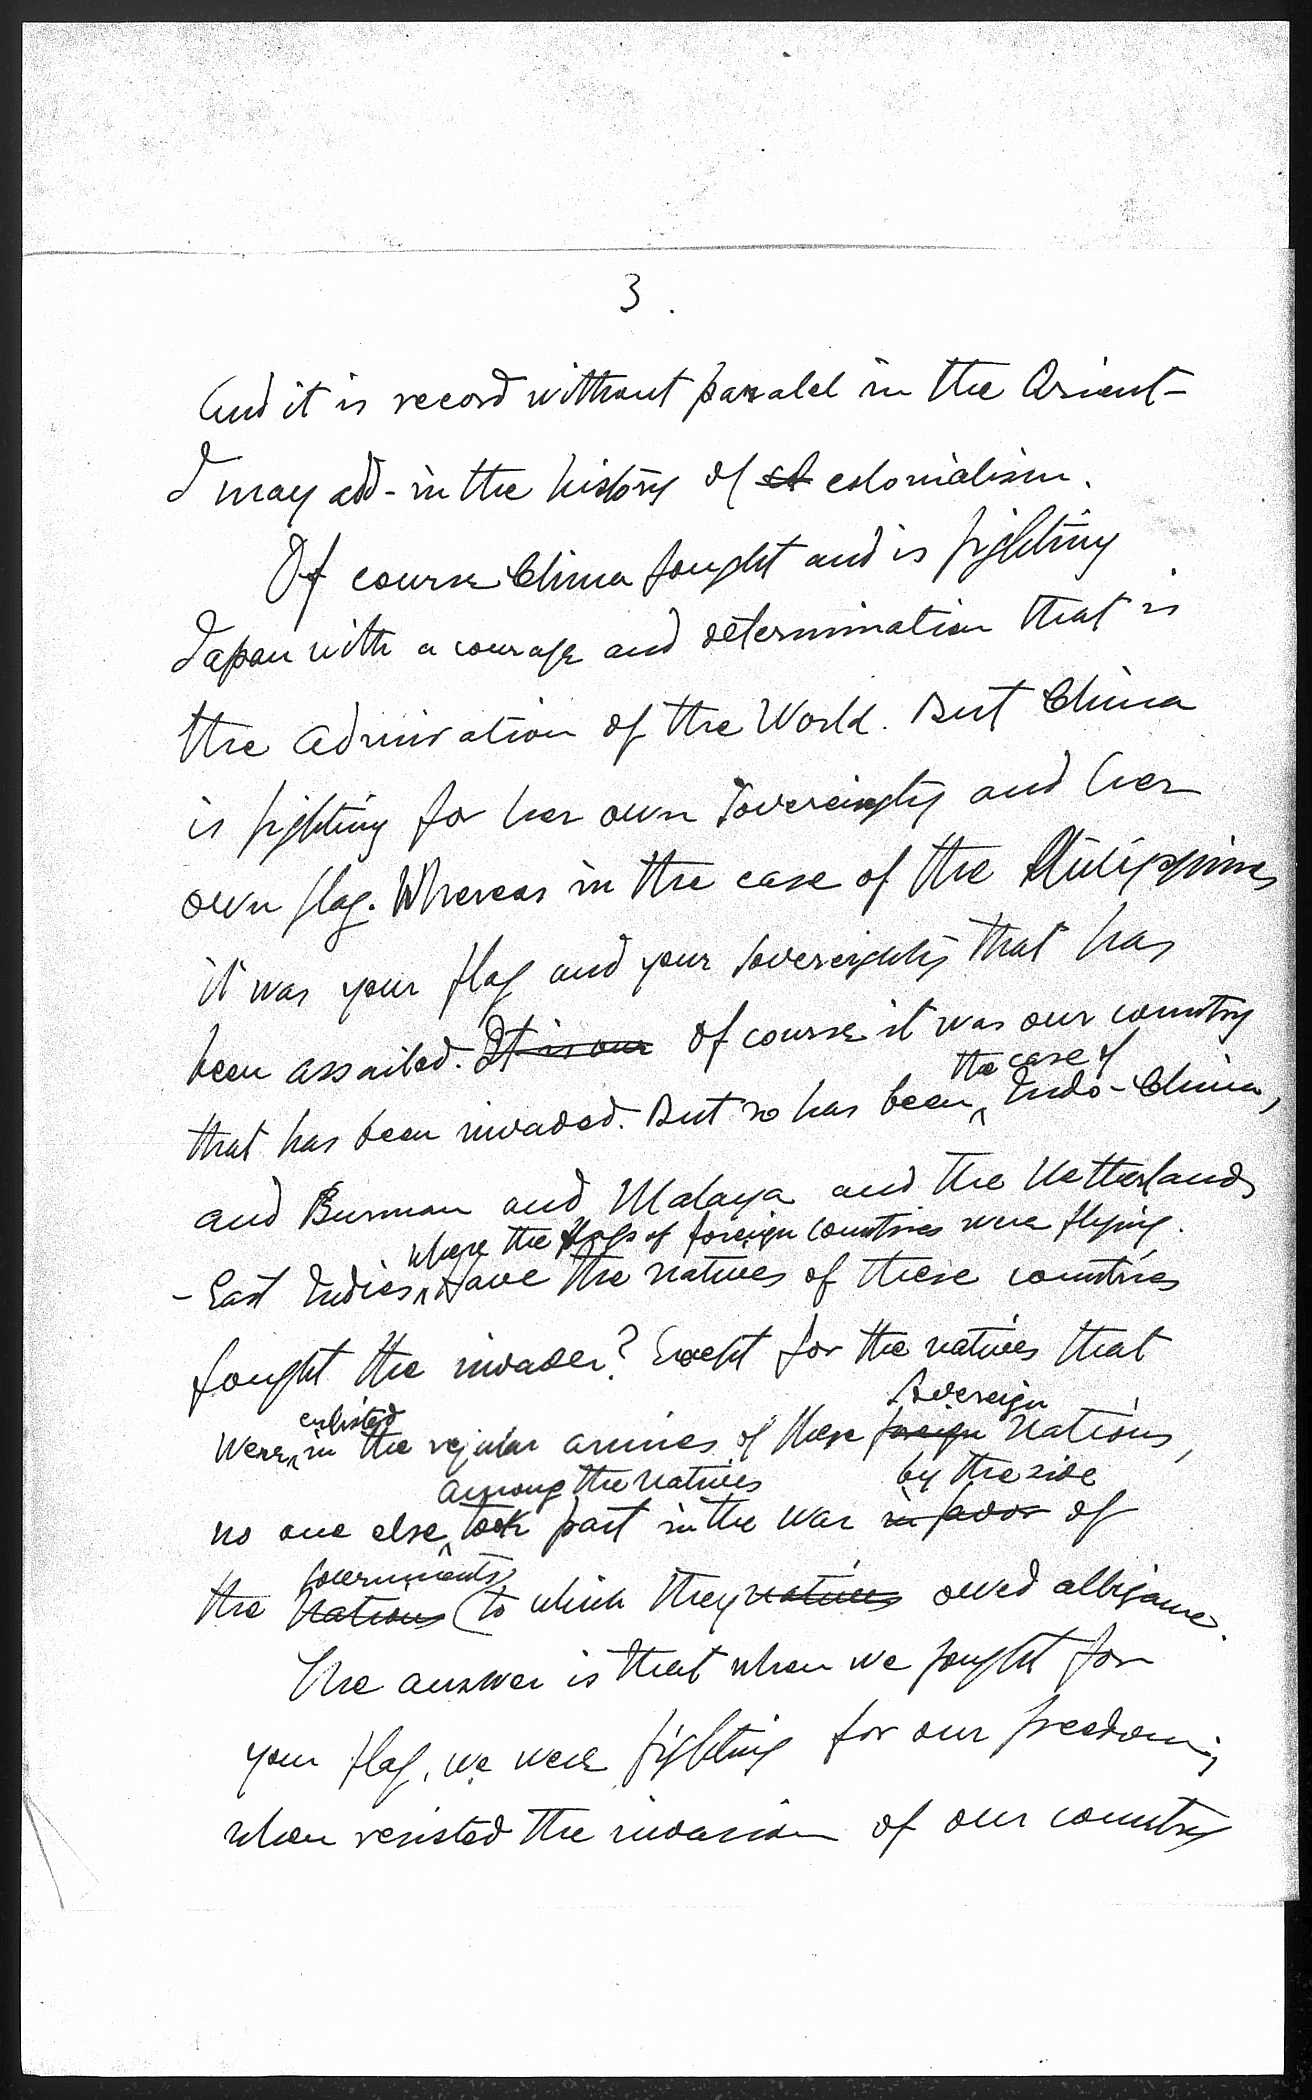 3.
And it is record without paralel in the Orient -
I may add - in the history of colonialism.
Of course China fought and is fighting
Japan with a courage and determination that is
the admiration of the World. But China
is fighting for her own sovereingty and her
own flag. Whereas in the case of the Philippines
it was your flag and your sovereignty that has
been assailed. It is our Of course it was our country
the case of
that has been invaded. But so has been Indo-China,
and Burman and Malaya and the Netherlands
where the flags of foreign countries were flying.
- East Indies, Have the natives of these countries
fought the invader? Except for the natives that
enlisted sovereign
were in the regular armies of these foreign Nations,
among the natives by the side
no one else took part in the war in favor of
governments
the Nations (to which they natives owed allegiance.
The answer is that when we fought for
your flag, we were fighting for our freedom;
when resisted the invasion of our country